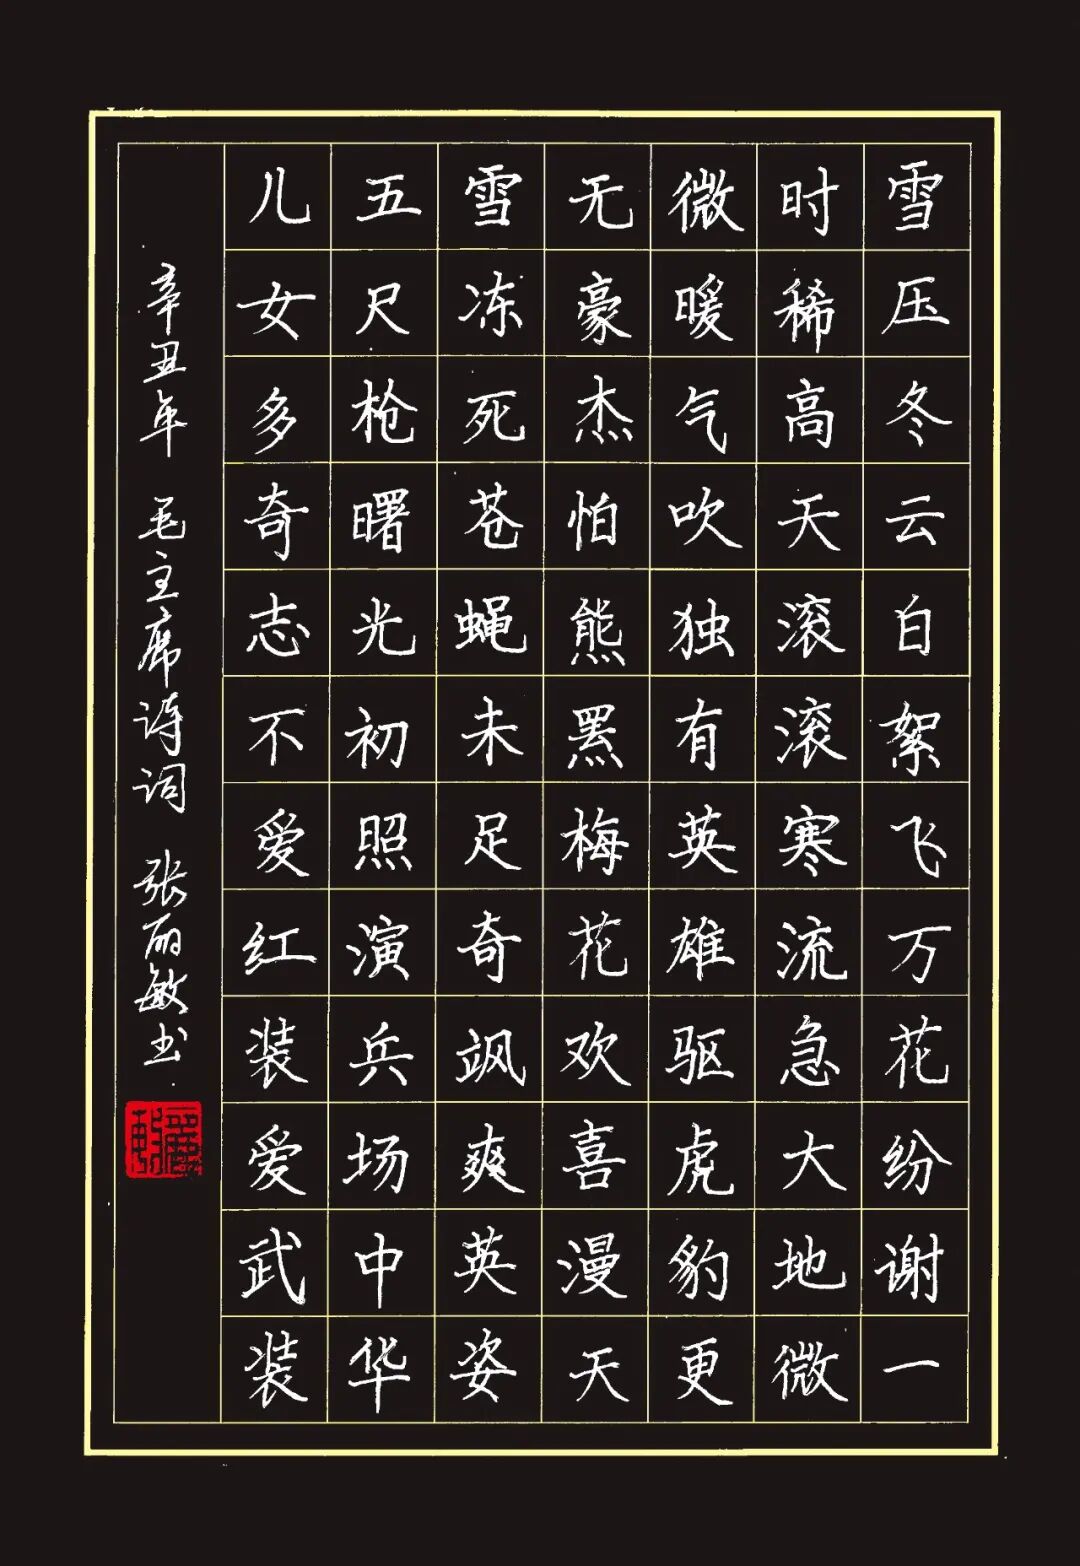 雪压冬云白絮飞万花纷谢一
时稀高天滚滚寒流急大地微
微暖气吹独有英雄驱虎豹更
无豪杰怕熊罴梅花欢喜漫天
雪冻死苍蝇未足奇飒爽英姿
五尺枪曙光初照演兵场中华
儿女多奇志不爱红装爱武装
辛丑年 毛主席诗词 张丽敏书